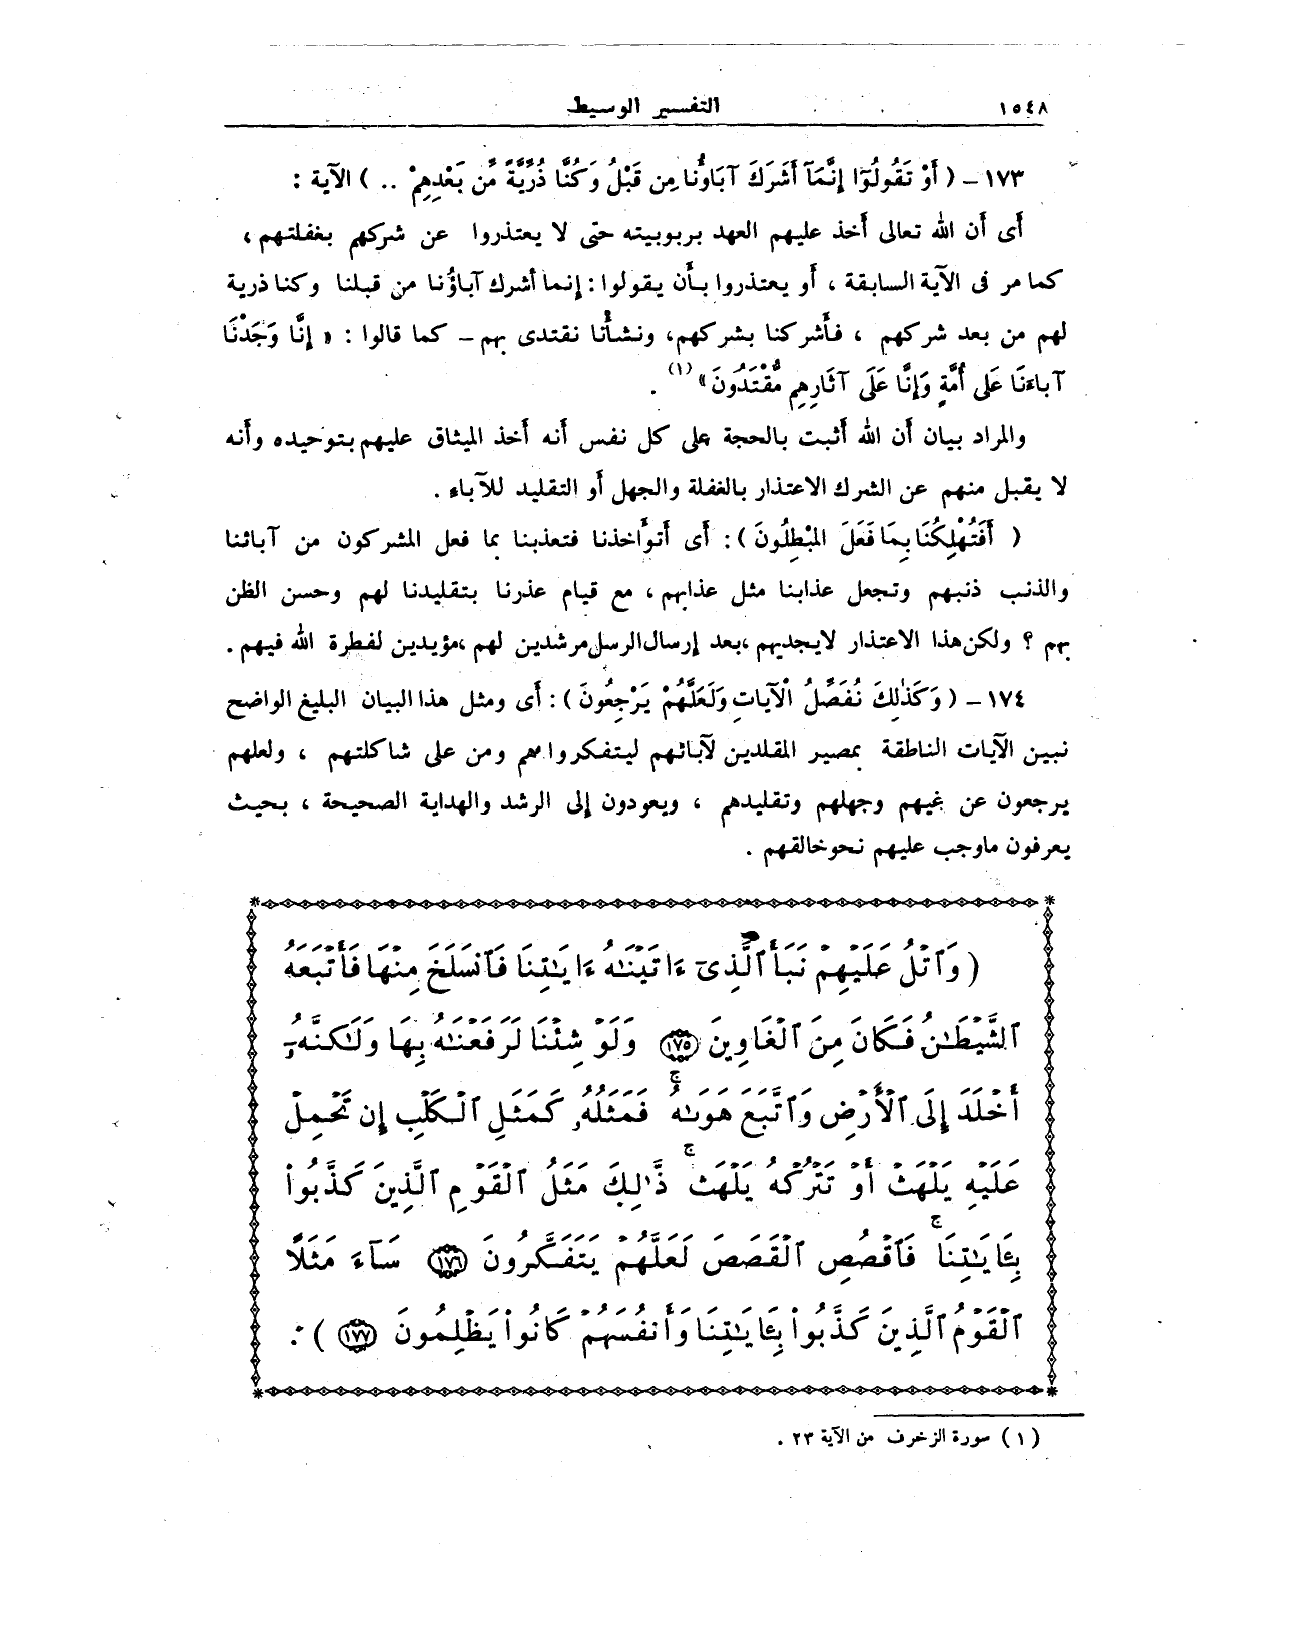 ١٥٤٨
التفسير الوسيط
١٧٣ – ( أَوْ تَقُولُوٓا إِنَّمَآ أَشَرَكَ آبَاؤُنَا مِن قَبْلُ وَكُنَّا ذُرِّيَّةً مِّن بَعْدِهِمْ .. ) الآية :
أى أن الله تعالى أخذ عليهم العهد بربوبيته حتى لا يعتذروا عن شركهم بغفلتهم ،
كما مر فى الآية السابقة ، أو يعتذروا بأن يقولوا : إنما أشرك آباؤنا من قبلنا وكنا ذرية
لهم من بعد شركهم ، فأشركنا بشركهم، ونشأنا نقتدى بهم – كما قالوا : « إِنَّا وَجَدْنَا
آبَاءَنَا عَلَى أُمَّةٍ وَإِنَّا عَلَى آثَارِهِم مُّقْتَدُونَ » (١) .
والمراد بيان أن الله أثبت بالحجة على كل نفس أنه أخذ الميثاق عليهم بتوحيده وأنه
لا يقبل منهم عن الشرك الاعتذار بالغفلة والجهل أو التقليد للآباء .
( أَفَتُهْلِكُنَا بِمَا فَعَلَ المُبْطِلُونَ ) : أى أتؤاخذنا فتعذبنا بما فعل المشركون من آبائنا
والذنب ذنبهم وتجعل عذابنا مثل عذابهم ، مع قيام عذرنا بتقليدنا لهم وحسن الظن
بهم ؟ ولكن هذا الاعتذار لايجديهم ،بعد إرسال الرسل مرشدين لهم ،مؤيدين لفطرة الله فيهم .
١٧٤ – ( وَكَذَٰلِكَ نُفَصِّلُ الْآيَاتِ وَلَعَلَّهُمْ يَرْجِعُونَ ) : أى ومثل هذا البيان البليغ الواضح
نبين الآيات الناطقة بمصير المقلدين لآبائهم ليتفكروا هم ومن على شاكلتهم ، ولعلهم
يرجعون عن غيهم وجهلهم وتقليدهم ، ويعودون إلى الرشد والهداية الصحيحة ، بحيث
يعرفون ماوجب عليهم نحو خالقهم .
( وَٱتْلُ عَلَيْهِمْ نَبَأَ ٱلَّذِىٓ ءَاتَيْنَٰهُ ءَايَٰتِنَا فَٱنسَلَخَ مِنْهَا فَأَتْبَعَهُ
ٱلشَّيْطَٰنُ فَكَانَ مِنَ ٱلْغَاوِينَ ﴿١٧٥﴾ وَلَوْ شِئْنَا لَرَفَعْنَٰهُ بِهَا وَلَٰكِنَّهُۥٓ
أَخْلَدَ إِلَى ٱلْأَرْضِ وَٱتَّبَعَ هَوَىٰهُ ۚ فَمَثَلُهُۥ كَمَثَلِ ٱلْكَلْبِ إِن تَحْمِلْ
عَلَيْهِ يَلْهَثْ أَوْ تَتْرُكْهُ يَلْهَث ۚ ذَّٰلِكَ مَثَلُ ٱلْقَوْمِ ٱلَّذِينَ كَذَّبُوا۟
بِـَٔايَٰتِنَا ۚ فَٱقْصُصِ ٱلْقَصَصَ لَعَلَّهُمْ يَتَفَكَّرُونَ ﴿١٧٦﴾ سَآءَ مَثَلًا
ٱلْقَوْمُ ٱلَّذِينَ كَذَّبُوا۟ بِـَٔايَٰتِنَا وَأَنفُسَهُمْ كَانُوا۟ يَظْلِمُونَ ﴿١٧٧﴾ ) :
( ١ ) سورة الزخرف من الآية ٢٣ .